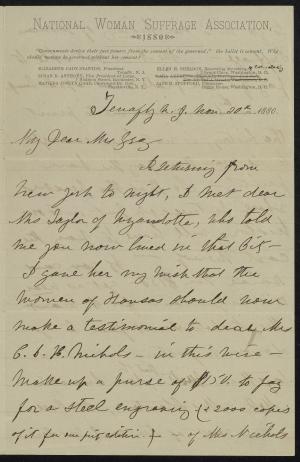 NATIONAL WOMAN SUFFRAGE ASSOCIATION,
1880
"Governments derive their just powers from the consent of the governed;" the ballot is consent. Why
should woman be governed without her consent?
ELIZABETH CADY STANTON, President,
Tenafly, N. J.
SUSAN B. ANTHONY, Vice President at Large,
Rochester, N. Y.
MATILDA JOSLYN GAGE,
Fayetteville, N. Y.
ELLEN H. SHELDON, Recording Secretary,
Washington, D. C.
JANE H. SPOFFORD,
Riggs House, Washington, D. C.
Tenafly N. J. Nov. 20th 1880.
My Dear Mrs
Returning from
New York to night, I met dear
Mrs Taylor of Wyandotte, who told
me you now lived in that City –
I gave her my wish that the
women of Kansas should now
make a testimonial to dear Mrs
C. I. H. Nichols – in this wise –
Make up a purse of $150. to pay
for a steel engraving (& 2000 copies
of it for our edition) – of Mrs Nichols